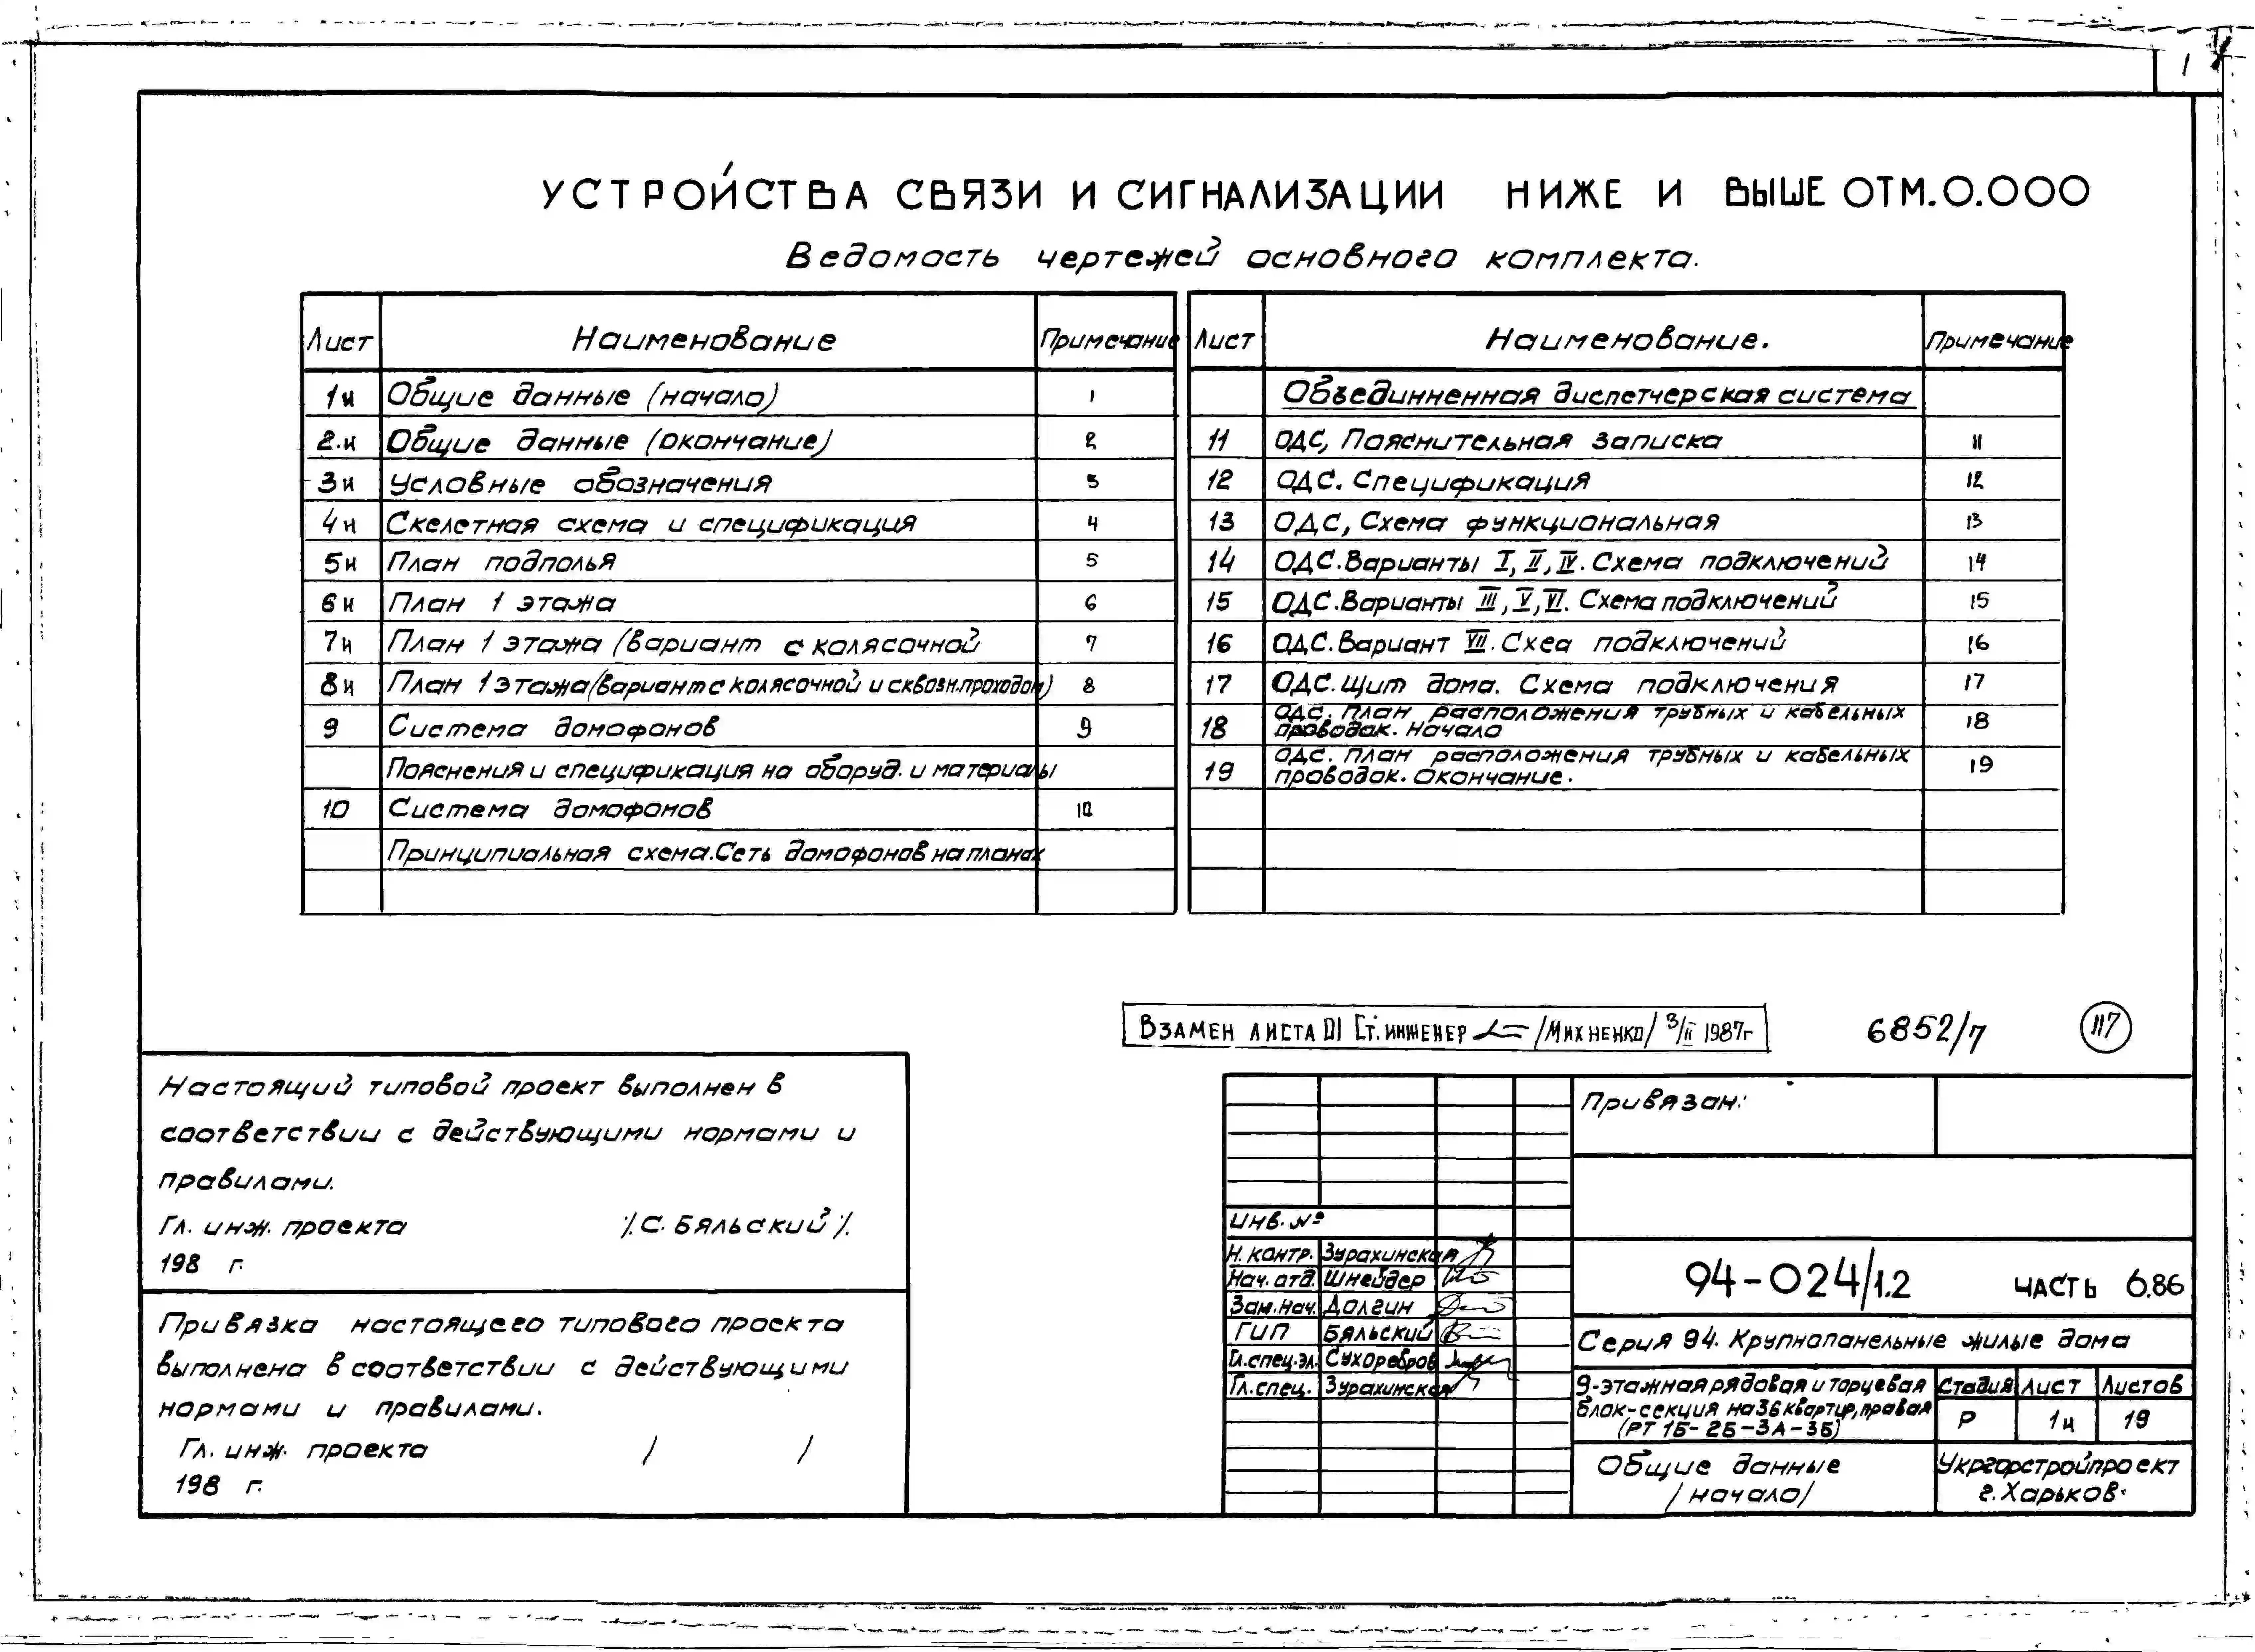 1
УСТРОЙСТВА СВЯЗИ И СИГНАЛИЗАЦИИ НИЖЕ И ВЫШЕ ОТМ.0.000
Ведомость чертежей основного комплекта.
Лист Наименование Примечание
1и Общие данные (начало) 1
2.и Общие данные (окончание) 2
3и Условные обозначения 3
4и Скелетная схема и спецификация 4
5и План подполья 5
6и План 1 этажа 6
7и План 1 этажа (вариант с колясочной 7
8и План 1 этажа (вариант с колясочной и сквозн.проходом) 8
9 Система домофонов 9
Пояснения и спецификация на оборуд. и материалы
10 Система домофонов 10
Принципиальная схема. Сеть домофонов на планах
Лист Наименование. Примечание
Объединненная диспетчерская система
11 ОДС, Пояснительная записка 11
12 ОДС. Спецификация 12
13 ОДС, Схема функциональная 13
14 ОДС. Варианты I, II, IV. Схема подключений 14
15 ОДС. Варианты III, V, VI. Схема подключений 15
16 ОДС. Вариант VII. Схеа подключений 16
17 ОДС. Щит дома. Схема подключения 17
18 ОДС. План расположения трубных и кабельных 18
проводок. Начало
19 ОДС. План расположения трубных и кабельных 19
проводок. Окончание.
Взамен листа 01 Ст. инженер /Михненко/ 3/II 1987г
6852/7
117
Настоящий типовой проект выполнен в
соответствии с действующими нормами и
правилами.
Гл. инж. проекта /. С. Бяльский /.
198 г.
Привязка настоящего типового проекта
выполнена в соответствии с действующими
нормами и правилами.
Гл. инж. проекта / /
198 г.
Привязан:
Инв. №
Н. контр. Зурахинская
Нач. отд. Шнейдер
Зам. нач. Долгин
ГИП Бяльский
Гл. спец. эл. Сухоребров
Гл. спец. Зурахинская
94-024/1.2 ЧАСТЬ 6.86
Серия 94. Крупнопанельные жилые дома
9-этажная рядовая и торцевая
блок-секция на 36 квартир, правая
(РТ 1Б-2Б-3А-3Б)
Стадия Лист Листов
Р 1и 19
Общие данные
/начало/
Укргорстройпроект
г. Харьков